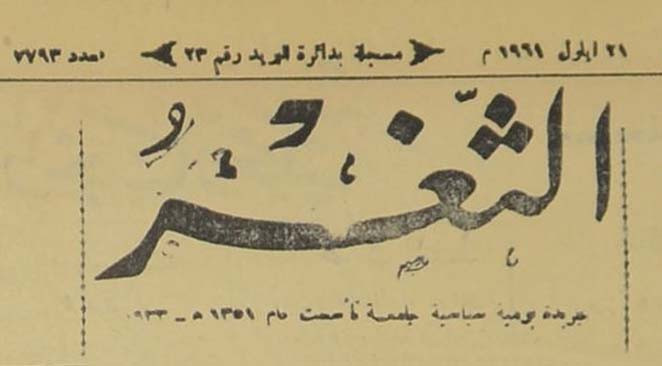 ٢١ ايلول ١٩٦١ م مسجلة بدائرة البريد رقم ٢٣ عدد ٧٧٩٣
الثغر
جريدة يومية سياسية جامعة تأسست عام ١٣٥١ هـ - ٩٣٣